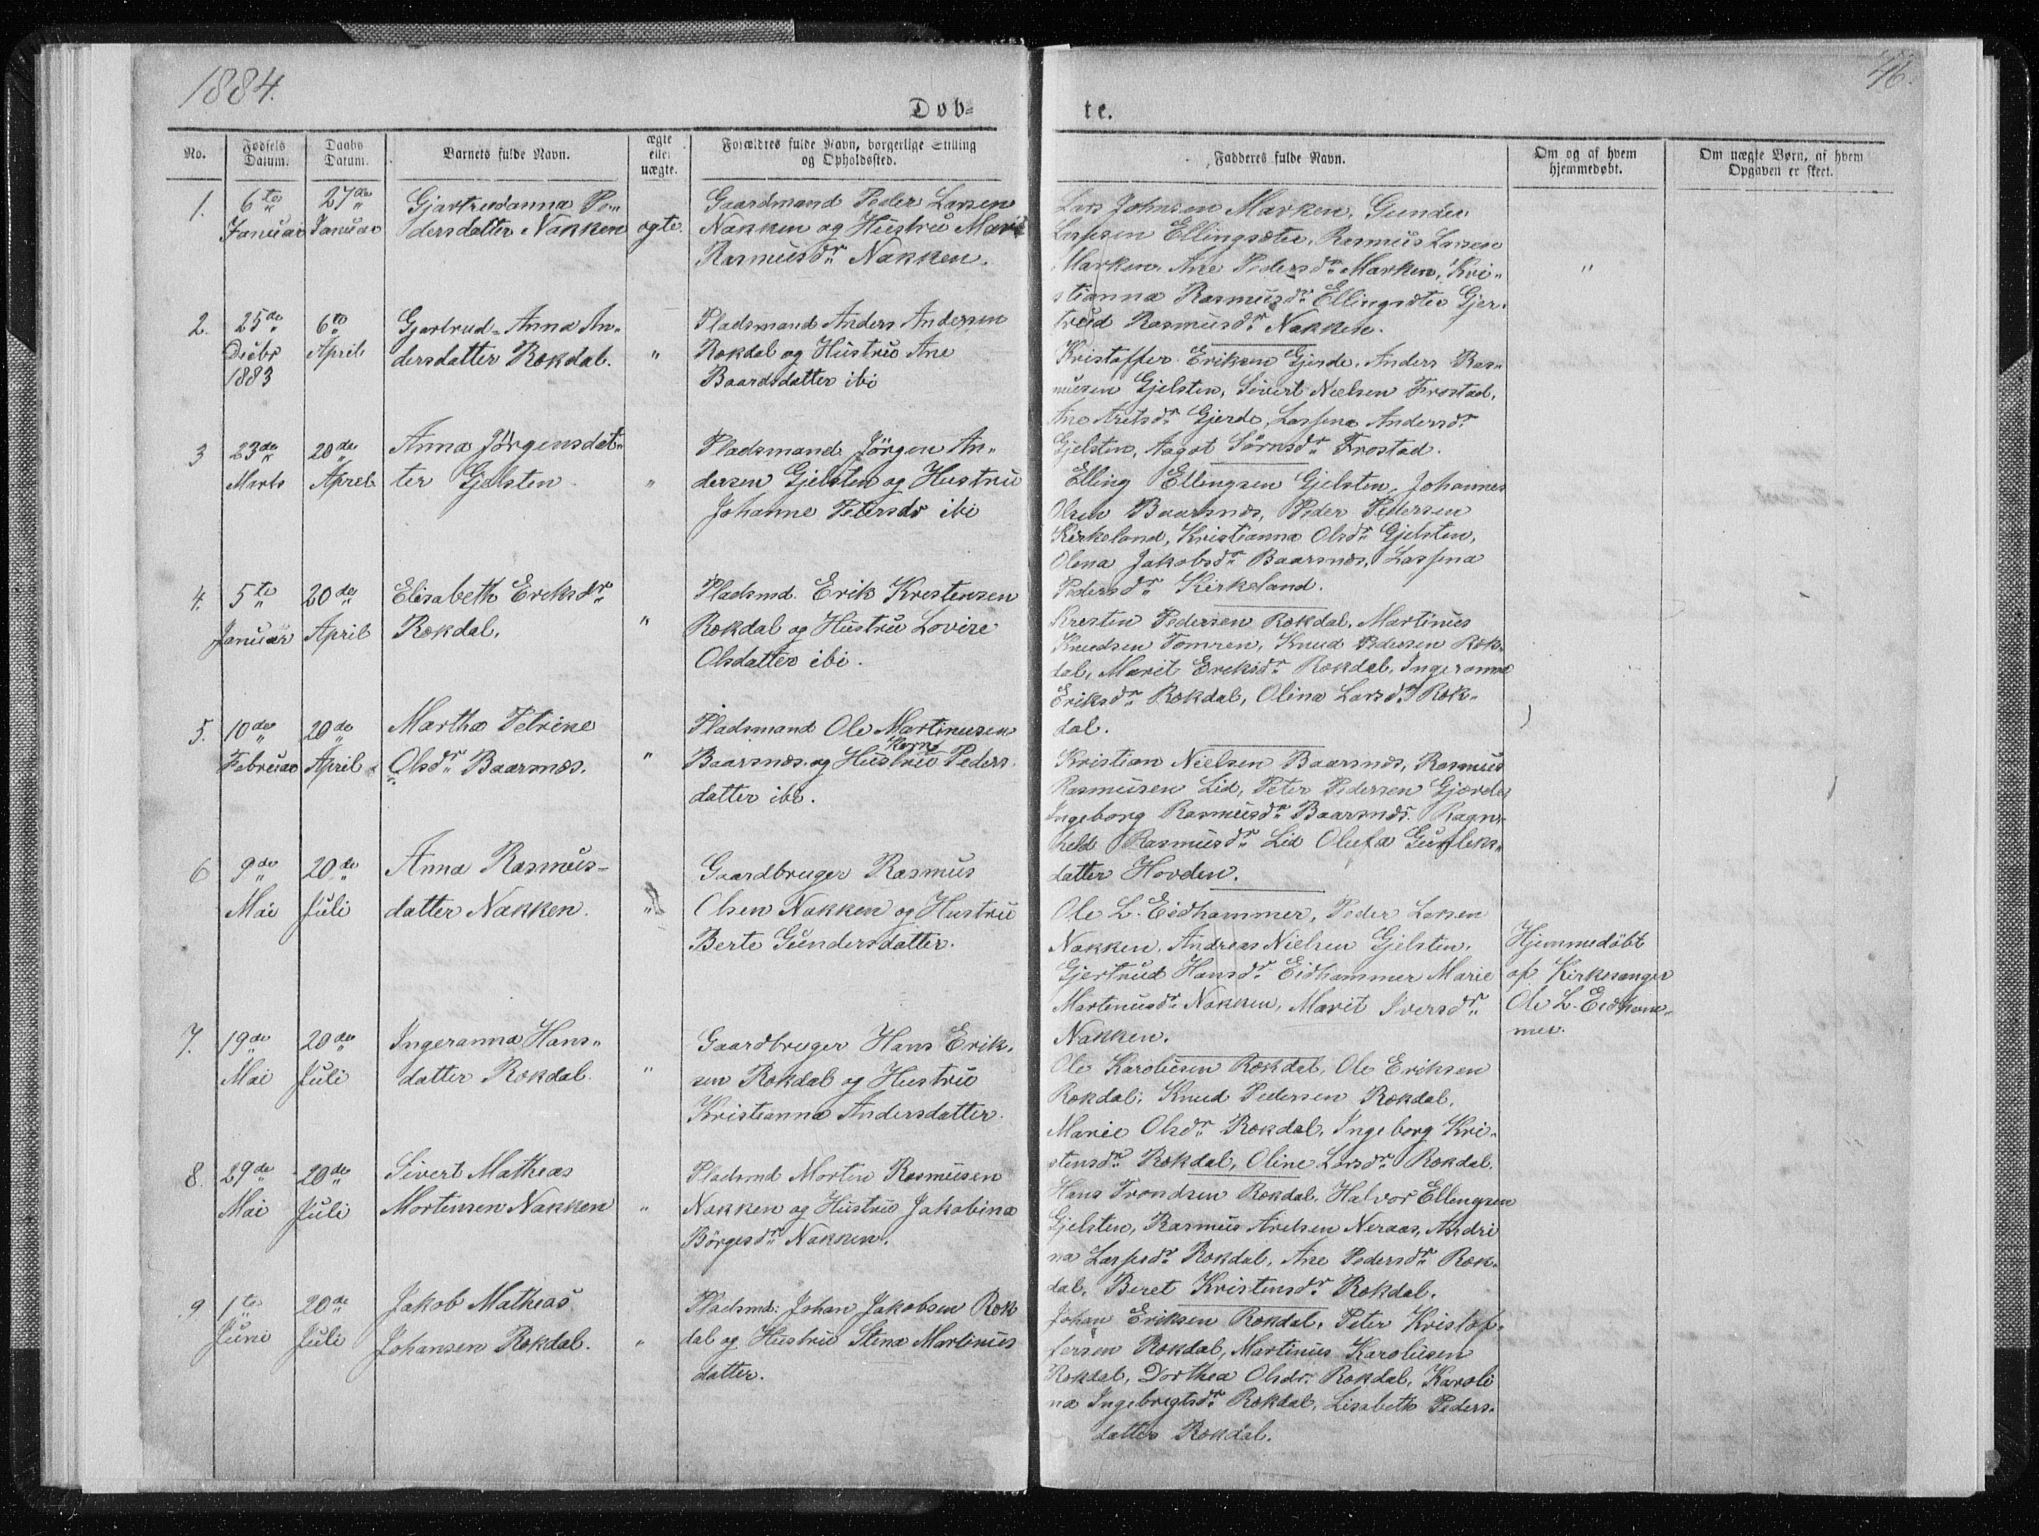 1884.
46.
Døb=
te.
No.
Fødsels Datum.
Daabs Datum.
Barnets fulde Navn.
ægte eller uægte.
Forældres fulde Navn, borgerlige Stilling og Opholdssted.
Fadderes fulde Navn.
Om og af hvem hjemmedøbt.
Om uægte Børn, af hvem Opgaven er skeet.
1.
6te Januar
27de Januar
Gjertrudanna Pe=
dersdatter Nakken
ægte
Gaardmand Peder Larsen
Nakken og Hustru Marit
Rasmusdr Nakken.
Lars Johnsen Marken, Gunder
Larsen Ellingsæter, Rasmus Larsen
Marken, Ane Pedersdr Marken, Kri=
stianna Rasmusdr Ellingsæter Gjer=
trud Rasmusdr Nakken.
"
2.
25de Decbr 1883
6te April
Gjertrud=Anna An=
dersdatter Rokdal.
"
Pladsmand Anders Andersen
Rokdal og Hustru Ane
Baardsdatter ibi
Kristoffer Eriksen Gjerde, Anders Ras=
musen Gjelsten, Sivert Nielsen Frostad,
Ane Aretsdr Gjerde, Laspina Andersdr
Gjelsten, Aagot Sørnsdr Frostad.
3
23de Marts
20de April
Anna Jørgensdat=
ter Gjelsten
"
Pladsmand Jørgen An=
dersen Gjelsten og Hustru
Johanne Petersdr ibi
Elling Ellingsen Gjelsten, Johannes
Olsen Baarsnæs, Peder Pedersen
Kirkeland, Kristianna Olsdr Gjelsten,
Olena Jakobsdr Baarsnæs, Laspina
Pedersdr Kirkeland.
4.
5te Januar
20de April
Elisabeth Eriksdr
Rokdal.
"
Pladsmd. Erik Kristensen
Rokdal og Hustru Lovise
Olsdatter ibi.
Kresten Pedersen Rokdal, Martinus
Knudsen Tomren, Knud Pedersen Rok=
dal, Marit Eriksdr Rokdal, Ingeranna
Eriksdr Rokdal, Olina Larsdr Rok=
dal.
5.
10de Februar
20de April
Martha Petrine
Olsdr Baarsnæs.
"
Pladsmand Ole Martinusen
Baarsnæs og Hustru Karn Peders
datter ibi.
Kristian Nielsen Baarsnæs, Rasmus
Rasmusen Lid, Peter Pedersen Gjerde,
Ingeborg Rasmusdr Baarsnæs, Ragn=
hild Rasmusdr Lid Olufa Gunleks=
datter Hovden.
6
9de Mai
20de Juli
Anna Rasmus=
datter Nakken.
"
Gaardbruger Rasmus
Olsen Nakken og Hustru
Berte Gundersdatter.
Ole L. Eidhammer, Peder Larsen
Nakken, Andreas Nielsen Gjelsten,
Gjertrud Hansdr Eidhammer Marie
Martinusdr Nakken, Marit Iversdr
Nakken.
Hjemmedøbt
af Kirkesanger
Ole L. Eidham=
mer.
7.
19de Mai
20de Juli
Ingeranna Hans=
datter Rokdal.
"
Gaardbruger Hans Erik=
sen Rokdal og Hustru
Kristianna Andersdatter.
Ole Karolusen Rokdal, Ole Eriksen
Rokdal, Knud Pedersen Rokdal,
Marie Olsdr Rokdal, Ingeborg Kri=
stensdr Rokdal, Oline Larsdr Rokdal.
8.
29de Mai
20de Juli
Sivert Matheas
Mortensen Nakken
"
Pladsmd Morten Rasmusen
Nakken og Hustru Jakobina
Børgesdr Nakken.
Hans Trondsen Rokdal, Halvor Ellingsen
Gjelsten, Rasmus Arelsen Neraas, Andri
na Laspsdr Rokdal, Ane Pedersdr Rok=
dal, Beret Kristensdr Rokdal.
9
1te Juni
20de Juli
Jakob Matheas
Johansen Rokdal.
"
Pladsmd. Johan Jakobsen Rok
dal og Hustru Stena Martinus
datter.
Johan Eriksen Rokdal, Peter Kristof=
fersen Rokdal, Martinus Karolusen
Rokdal, Dorthea Olsdr. Rokdal, Karoli
na Ingebregtsdr Rokdal, Lisabeth Peders=
datter Rokdal.